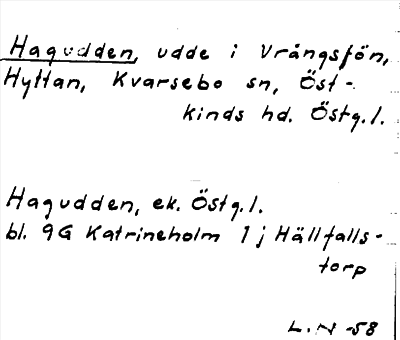 Hagudden, udde i Vrångsjön,
Hyttan, Kvarsebo sn, Öst-
kinds hd. Östg.l.
Hagudden, ek. Östg.l.
bl. 9G Katrineholm 1 j Hällfalls-
torp
L.N -58